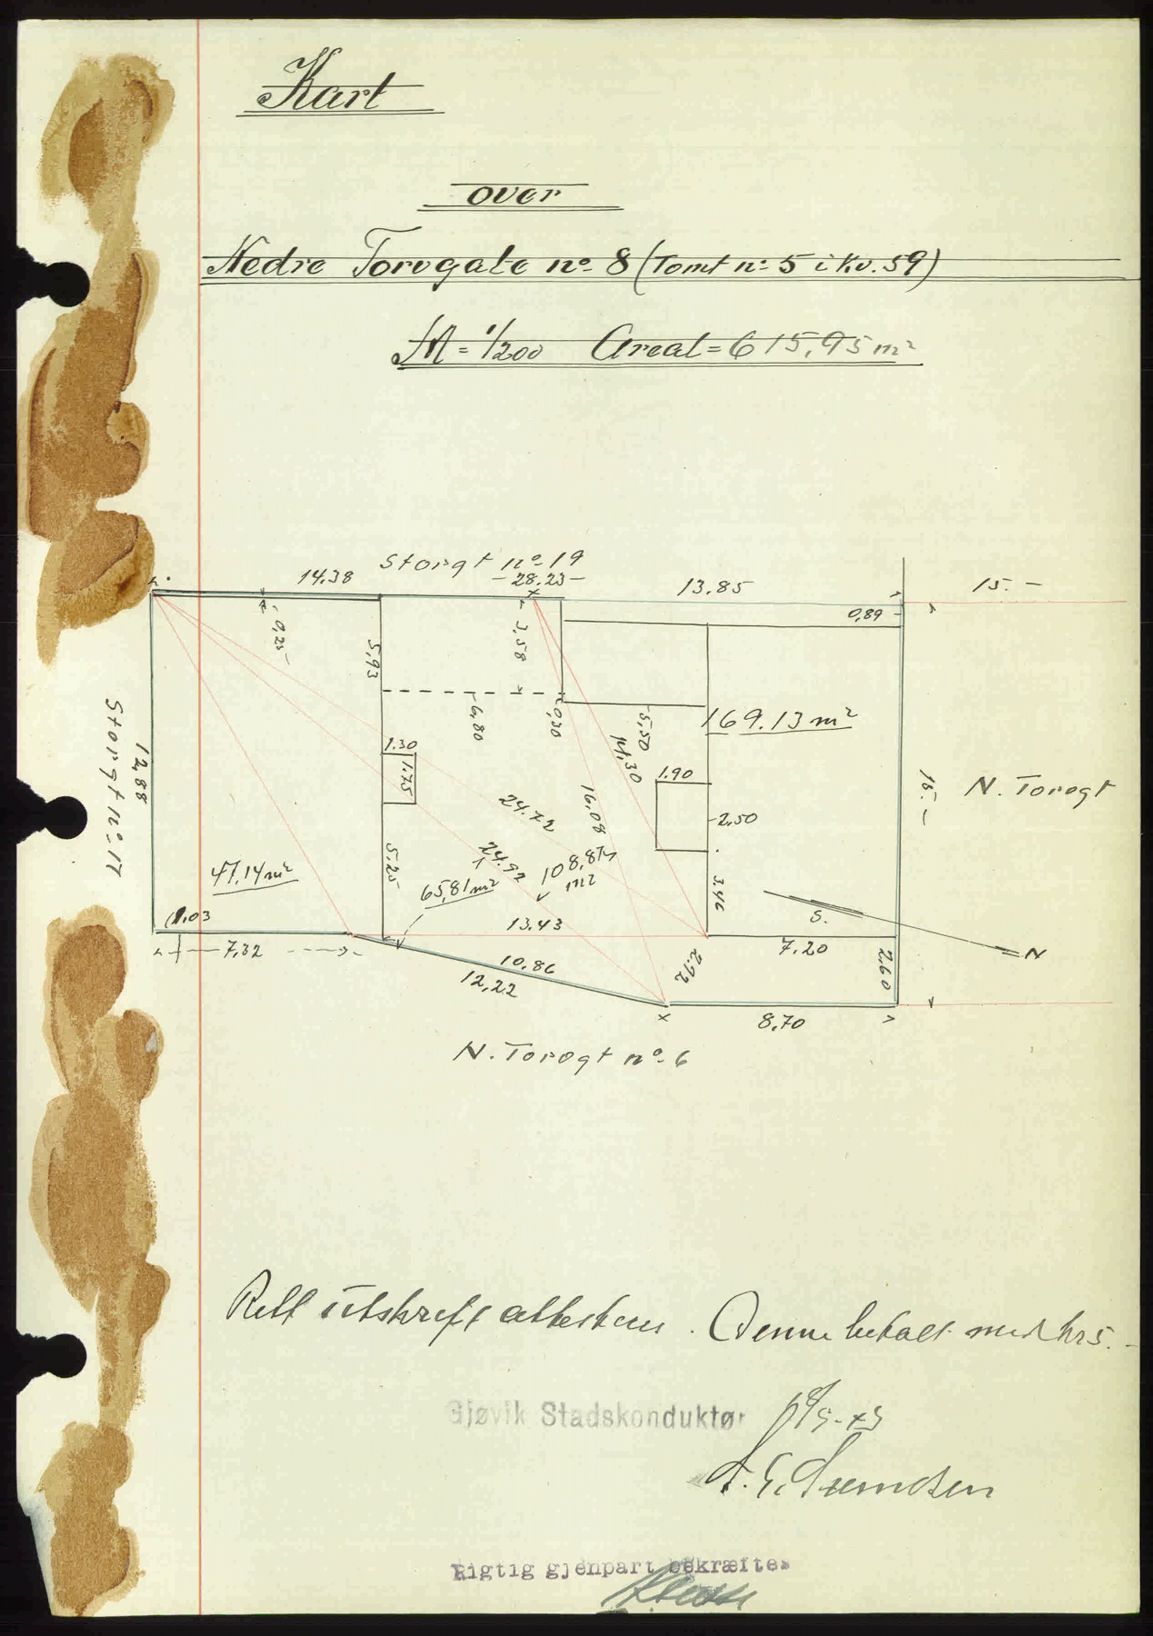 Kart
over
Nedre Torvgate no 8 (Tomt no 5 i Kv. 59)
M = 1/200 Areal = 615,95 m²
Storgt no 19
14.38
- 28.23 -
13,85
15. -
0,89
0,25
5,93
3,58
6,80
0,30
5,50
14,30
169.13 m²
1.30
1.75
1.90
2.50
Storgt no 17
12,88
24.72
24.92
16,08
108,87
m²
15. -
N. Torvgt
47,14 m²
65,81 m²
5,25
3,46
S.
N
1,03
7,32
13,43
10,86
12,22
2.92
7,20
2,60
8,70
N. Torvgt no 6
Rett utskrift attesteres. Denne betalt med kr 5. -
Gjøvik Stadskonduktør
Rigtig gjenpart bekræftes